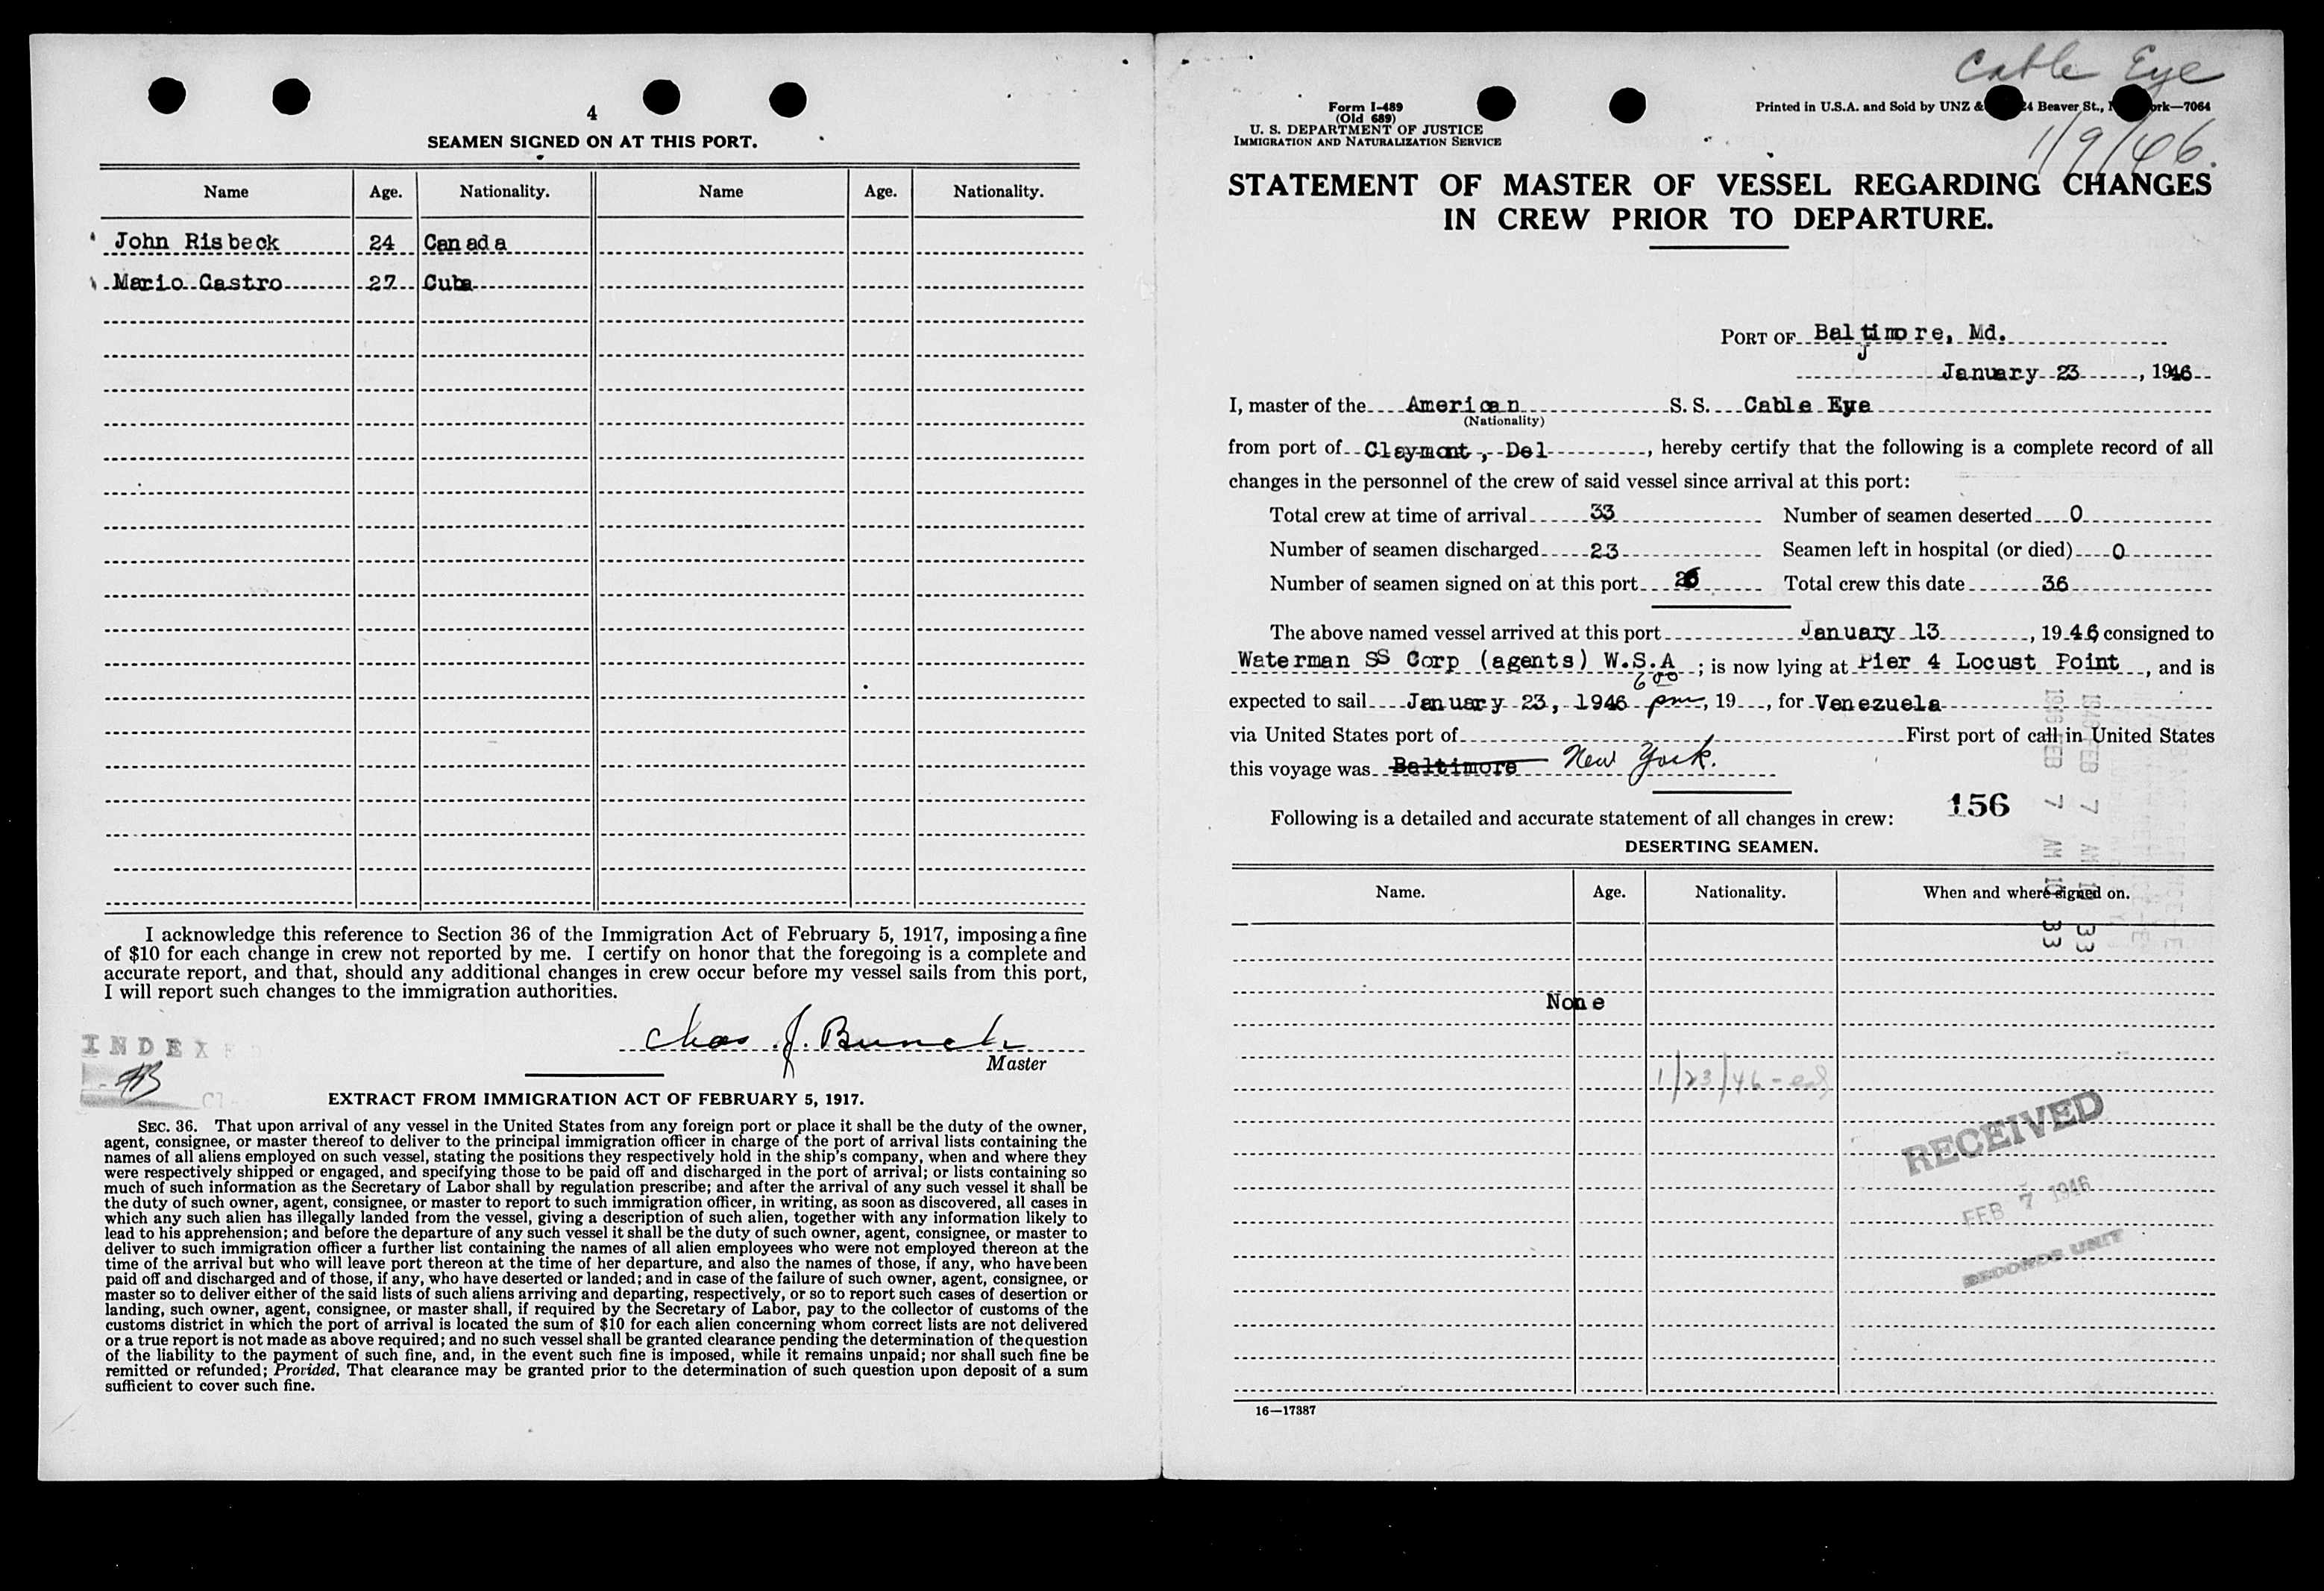 4
SEAMEN SIGNED ON AT THIS PORT.
Name Age. Nationality. Name Age. Nationality.
John Risbeck 24 Canada
Mario Castro 27 Cuba
I acknowledge this reference to Section 36 of the Immigration Act of February 5, 1917, imposing a fine
of $10 for each change in crew not reported by me. I certify on honor that the foregoing is a complete and
accurate report, and that, should any additional changes in crew occur before my vessel sails from this port,
I will report such changes to the immigration authorities.
INDEX
Chas. J. Bunch
Master
EXTRACT FROM IMMIGRATION ACT OF FEBRUARY 5, 1917.
SEC. 36. That upon arrival of any vessel in the United States from any foreign port or place it shall be the duty of the owner,
agent, consignee, or master thereof to deliver to the principal immigration officer in charge of the port of arrival lists containing the
names of all aliens employed on such vessel, stating the positions they respectively hold in the ship's company, when and where they
were respectively shipped or engaged, and specifying those to be paid off and discharged in the port of arrival; or lists containing so
much of such information as the Secretary of Labor shall by regulation prescribe; and after the arrival of any such vessel it shall be
the duty of such owner, agent, consignee, or master to report to such immigration officer, in writing, as soon as discovered, all cases in
which any such alien has illegally landed from the vessel, giving a description of such alien, together with any information likely to
lead to his apprehension; and before the departure of any such vessel it shall be the duty of such owner, agent, consignee, or master to
deliver to such immigration officer a further list containing the names of all alien employees who were not employed thereon at the
time of the arrival but who will leave port thereon at the time of her departure, and also the names of those, if any, who have been
paid off and discharged and of those, if any, who have deserted or landed; and in case of the failure of such owner, agent, consignee, or
master so to deliver either of the said lists of such aliens arriving and departing, respectively, or so to report such cases of desertion or
landing, such owner, agent, consignee, or master shall, if required by the Secretary of Labor, pay to the collector of customs of the
customs district in which the port of arrival is located the sum of $10 for each alien concerning whom correct lists are not delivered
or a true report is not made as above required; and no such vessel shall be granted clearance pending the determination of the question
of the liability to the payment of such fine, and, in the event such fine is imposed, while it remains unpaid; nor shall such fine be
remitted or refunded; Provided, That clearance may be granted prior to the determination of such question upon deposit of a sum
sufficient to cover such fine.
Cable Eye
1/9/46.
Form I-489
(Old 689)
U. S. DEPARTMENT OF JUSTICE
IMMIGRATION AND NATURALIZATION SERVICE
Printed in U.S.A. and Sold by UNZ & Beaver St., 7064
STATEMENT OF MASTER OF VESSEL REGARDING CHANGES
IN CREW PRIOR TO DEPARTURE.
PORT OF Baltimore, Md.
January 23, 1946
I, master of the American S. S. Cable Eye
(Nationality)
from port of Claymont, Del, hereby certify that the following is a complete record of all
changes in the personnel of the crew of said vessel since arrival at this port:
Total crew at time of arrival 33 Number of seamen deserted 0
Number of seamen discharged 23 Seamen left in hospital (or died) 0
Number of seamen signed on at this port 26 Total crew this date 36
The above named vessel arrived at this port January 13, 1946 consigned to
Waterman SS Corp (agents) W.S.A; is now lying at Pier 4 Locust Point, and is
expected to sail January 23, 1946 6 00 pm, 19, for Venezuela
via United States port of First port of call in United States
this voyage was Baltimore New York.
156
Following is a detailed and accurate statement of all changes in crew:
DESERTING SEAMEN.
Name. Age. Nationality. When and where signed on.
1946 FEB 7 AM 10 33
1946 FEB 7 AM 10 33
None
1/23/46
RECEIVED
FEB 7 1946
RECORDS UNIT
16—17387